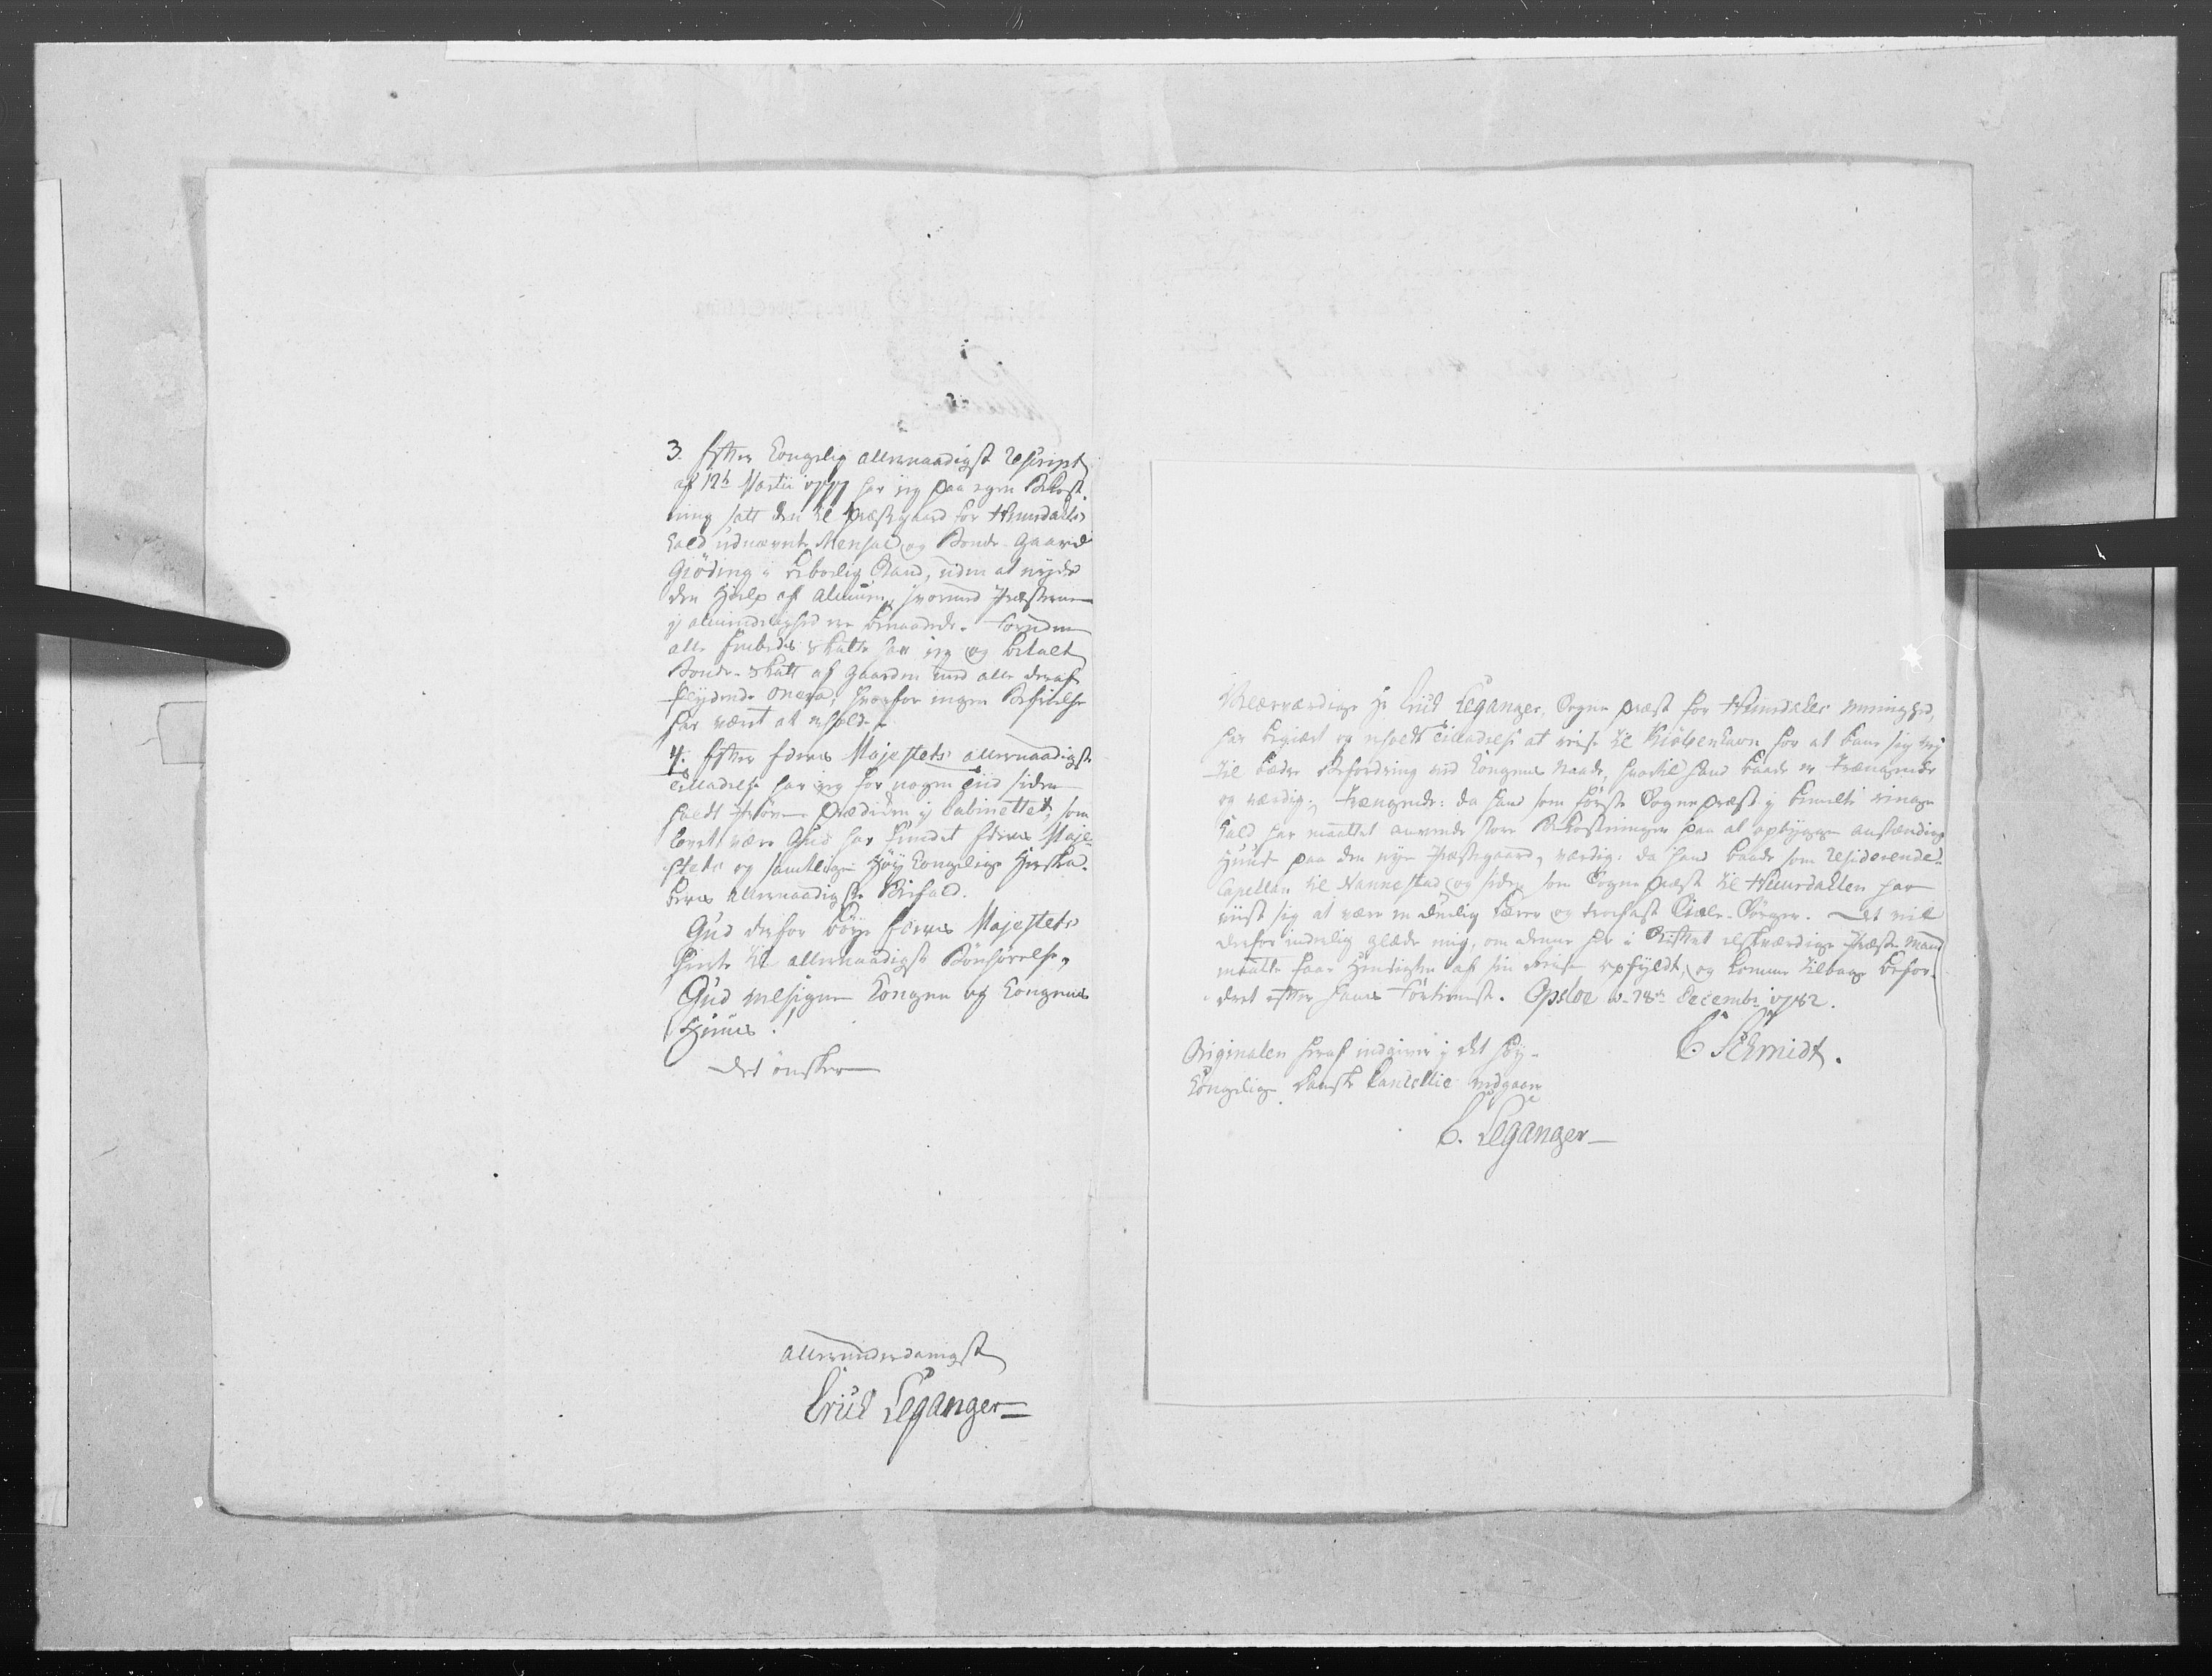 3. Efter Kongelig allernaadigst Rescript
af 12te Martii 1777 har jeg paa egen Bekost-
ning satt den til Præstegaard for Hemsdahls
Kald udnævnte Mensal og Bonde-Gaard
Gjøding i beboelig Stand, uden at nyde
den Hielp af Almuen, hvormed Præsterne
i almindelighed ere benaadede. Foruden
alle Embeds Skatter har jeg og betalt
Bonde-Skatt af Gaarden med alle deraf
flydende onera, hvorfor ingen Befrielse
har været at erholde.
4. Efter Eders Majestets allernaadigste
Tilladelse har jeg for nogen Tiid siden
holdt Prøve-Prædiken i Cabinettet, som
lovet være Gud har fundet Eders Maje-
stets og samtlige Høy Kongelige Herska-
bers allernaadigste Bifald.
Gud derfor bøye Eders Majestets
Hierte til allernaadigst Bønhørelse,
Gud velsigne Kongen og Kongens
Huus!
Det ønsker
allerunderdanigst
Erich Leganger
Velærværdige Hr Erich Leganger, Sogne præst for Hemsdahls Meenighed,
har begiært og erholdt Tilladelse at reise til Kiöbenhavn for at bane sig Vej
til bedre Befordring ved Kongens Naade, hvortil hand baade er trængende
og værdig; trængende: da hand som første Sogne præst i bemelte ringe
Kald har maattet anvende store Bekostninger paa at opbygge anstændige
Huuse paa den nye Præstegaard, værdig: da hand baade som Residerende-
Capellan til Nannestad og siden som Sogne præst til Hemsdahlen har
viist sig at være en duelig Lærer og troefast Siæle-Sørger. Det vil
derfor inderlig glæde mig, om denne her i Stiftet elskværdige Præste Mand
maatte faae Hensigten af sin Reise opfyldt, og komme tilbage befor-
dret efter hans Fortieneste. Opsloe d. 18de Decembr 1782.
C. Schmidt.
Originalen heraf indgiven i det høy-
Kongelige Danske Cancellie vedgaaer
E. Leganger